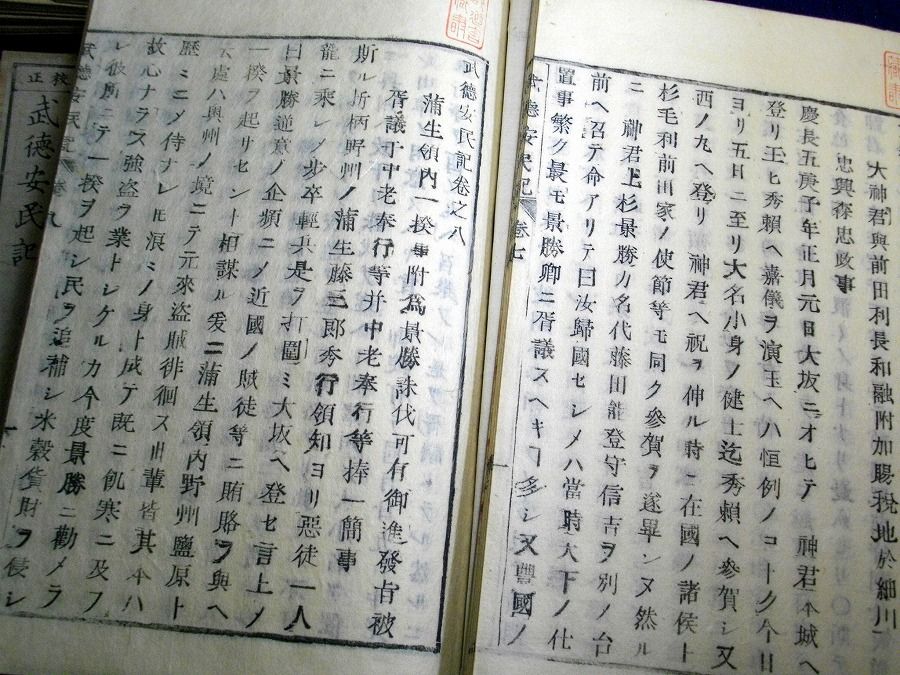 大神君與前田利長和融附加賜税地於細川
忠興森忠政事
慶長五庚子年正月元日大坂ニオヒテ 神君本城ヘ
登リ玉ヒ秀賴ヘ嘉儀ヲ演玉ヘハ恒例ノコトク今日
ヨリ五日ニ至リ大名小身ノ健士迄秀賴ヘ參賀シ又
西ノ丸ヘ登リ 神君ヘ祝ヲ伸ル時ニ在國ノ諸侯上
杉毛利前田家ノ使節等モ同ク參賀ヲ遂畢ンヌ然ル
ニ 神君上杉景勝カ名代藤田能登守信吉ヲ別ノ台
前ヘ召テ命アリテ曰汝歸國セシメハ當時天下ノ仕
置事繁ク最モ景勝卿ニ胥議スヘキヿ多シ又豐國ノ
武德安民記 卷七
武德安民記卷之八
蒲生領內一揆事附爲景勝誅伐可有御進發旨被
胥議于中老奉行等并中老奉行等捧一簡事
斯ル折柄野州ノ蒲生藤三郎秀行領知ヨリ惡徒一人
籠ニ乘レノ步卒輕兵是ヲ打圍ミ大坂ヘ登セ言上ノ
曰景勝逆意ノ企頻ニメ近國ノ賊徒等ニ賄賂ヲ與ヘ
一揆ヲ起サセント相謀ル爰ニ蒲生領內野州鹽原ト
云處ハ奧州ノ境ニテ元來盜賊徘徊ス此輩皆其本ハ
歷ミノ侍ナレ𪜈浪ミノ身ト成テ旣ニ飢寒ニ及フ
故心ナラス強盜ヲ業トレケルカ今度景勝ニ勸メラ
レ彼所ニテ一揆ヲ起シ民ヲ追捕シ米穀貨財ヲ侵シ
武德安民記 卷九
校正
武德安民記